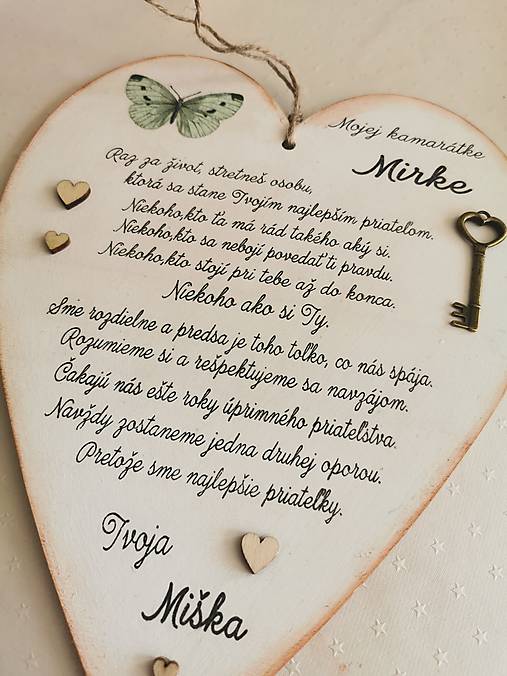 Mojej kamarátke
Mirke
Raz za život, stretneš osobu,
ktorá sa stane Tvojím najlepším priateľom.
Niekoho,kto ťa má rád takého aký si.
Niekoho,kto sa nebojí povedať ti pravdu.
Niekoho,kto stojí pri tebe až do konca.
Niekoho ako si Ty.
Sme rozdielne a predsa je toho toľko, čo nás spája.
Rozumieme si a rešpektujeme sa navzájom.
Čakajú nás ešte roky úprimného priateľstva.
Navždy zostaneme jedna druhej oporou.
Pretože sme najlepšie priateľky.
Tvoja
Miška